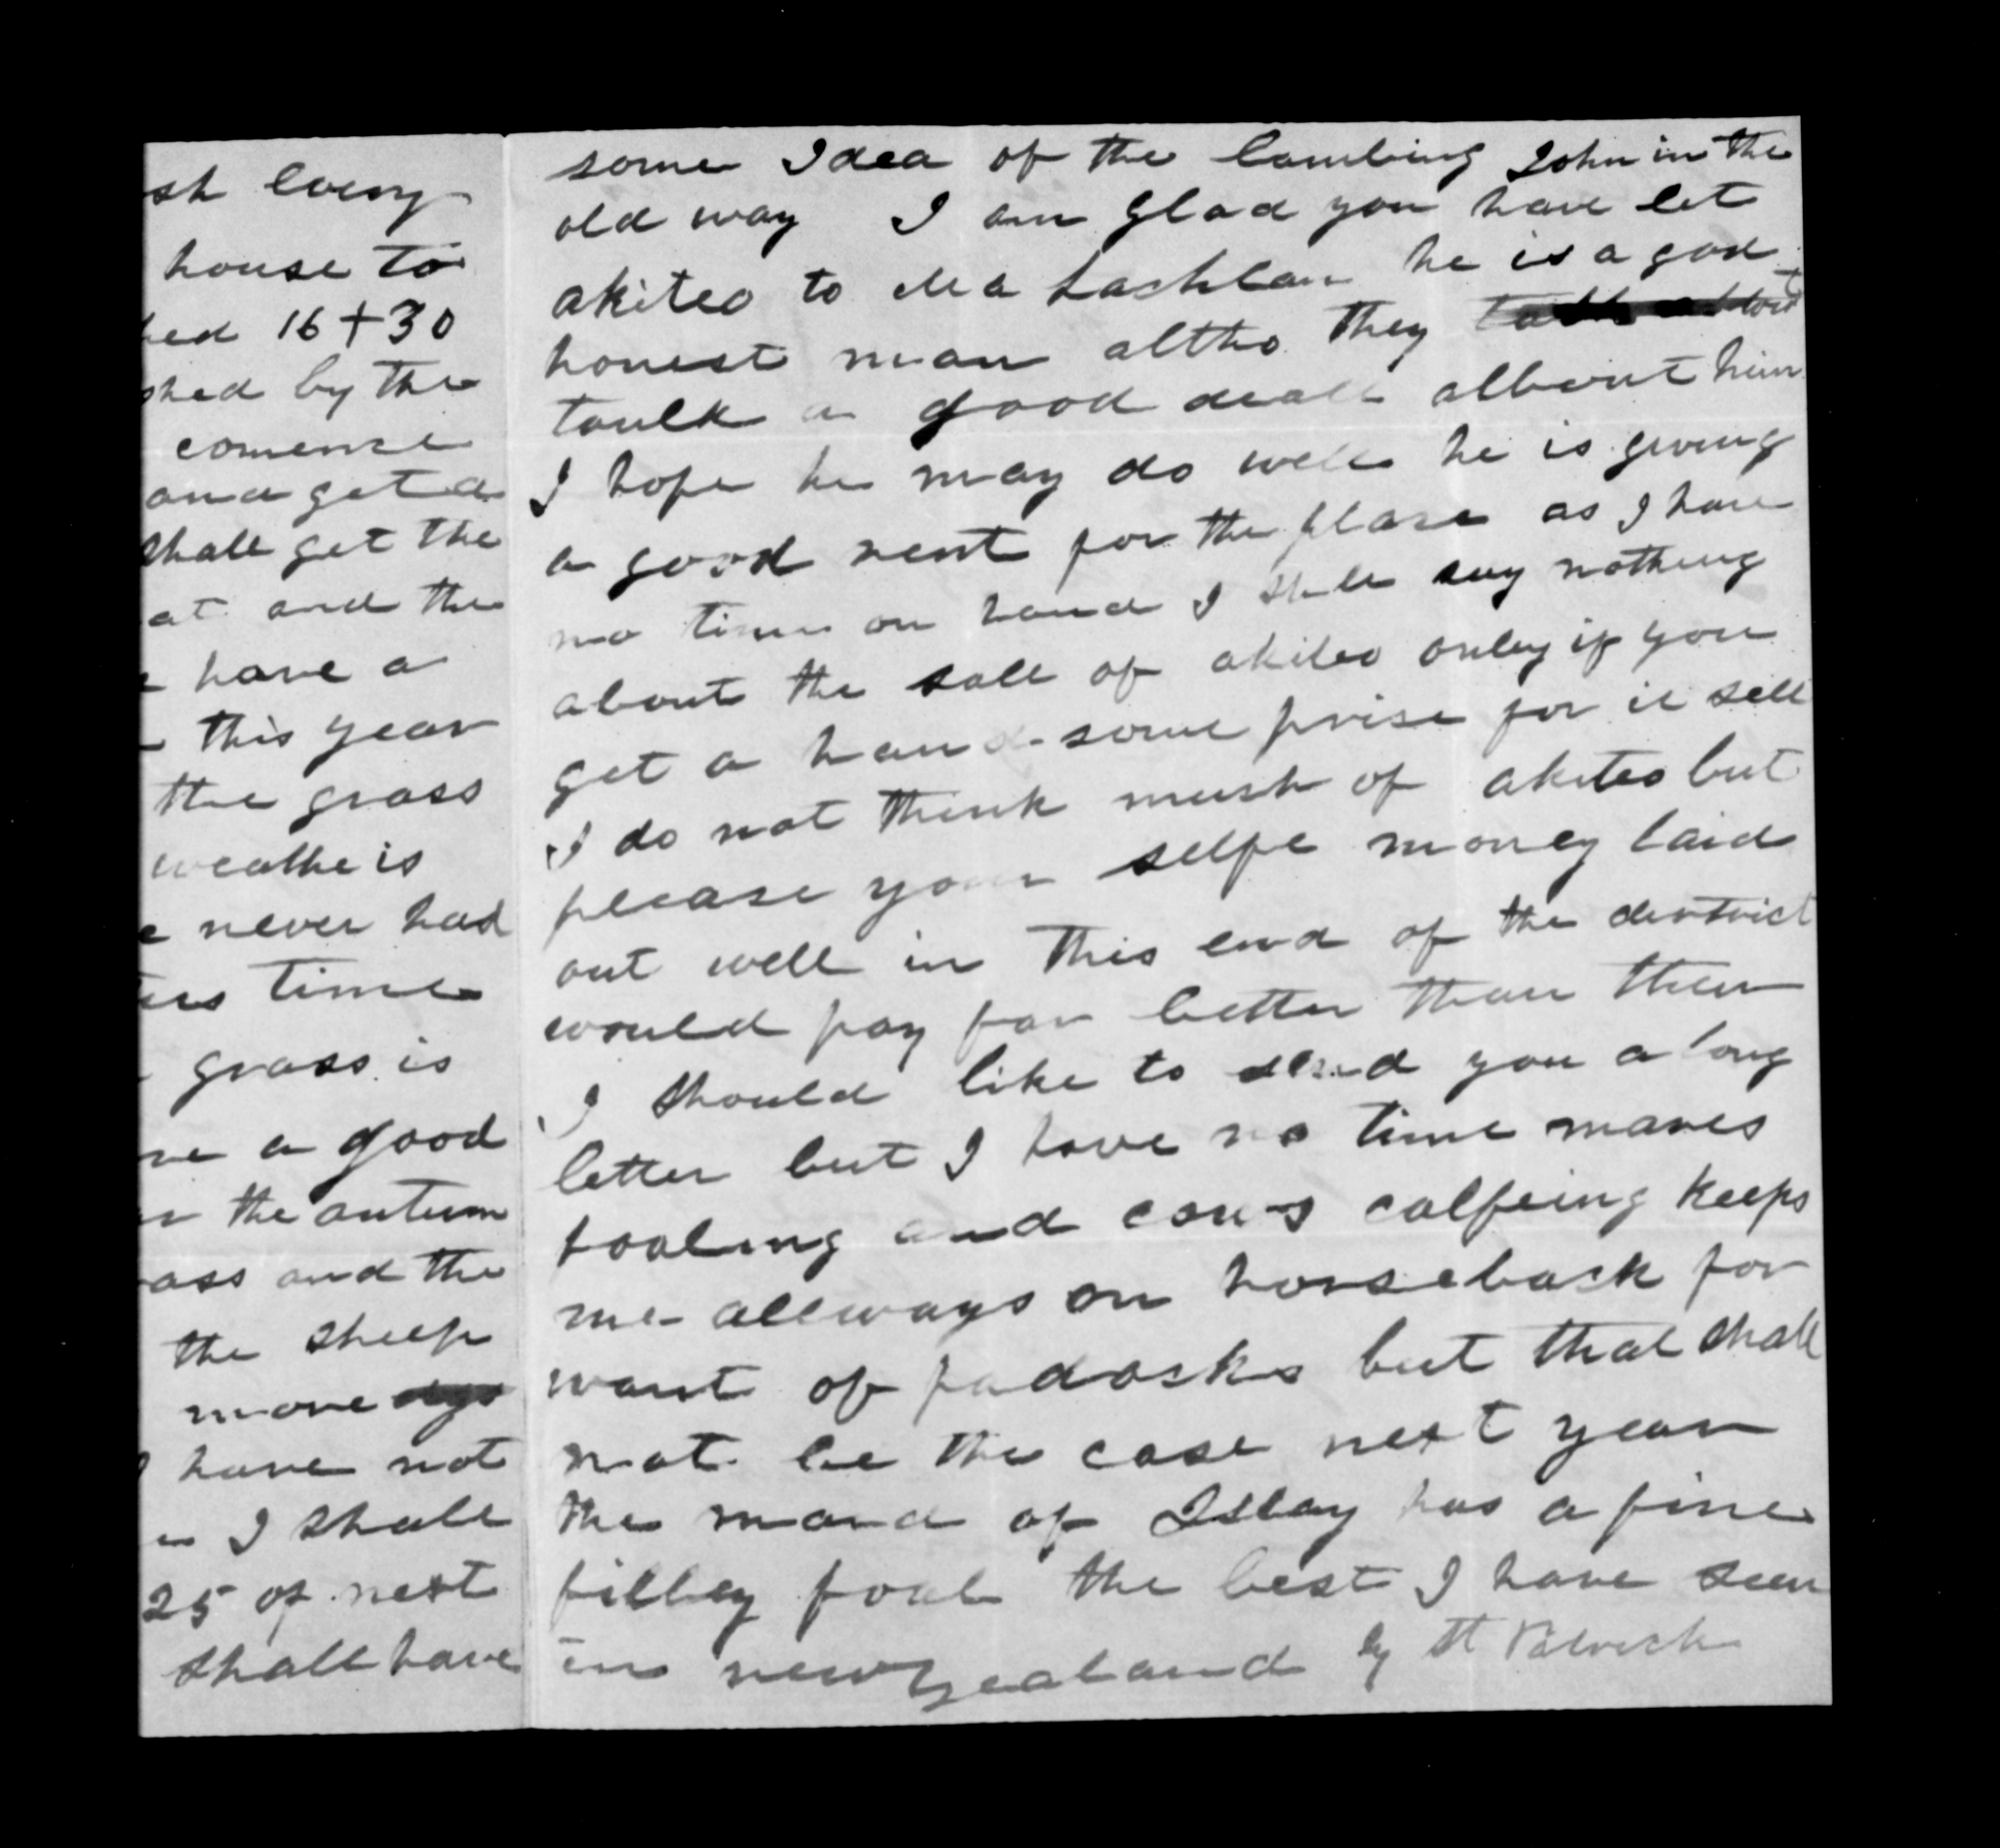 sh every
house to
ed 16 + 30
shed by the
comense
and get a
shall get the
at and the
have a
this year
the grass
weathe is
never had
time
grass is
a good
the autum
ass and the
the sheep
more
have not
I shall
25 of next
shall have
some Idea of the lambing John in the
old way I am glad you have let
akiteo to Ma Lachlan he is a god
honest man altho they
taulk a good deall abbout him
I hope he may do well he is giving
a good rent for the plase as I have
no time on hand I shall say nothing
about the sall of akiteo onley if you
get a hand-some prise for it sell
I do not think mush of akiteo but
please your selfe money laid
out well in this end of the district
would pay far better than then
I should like to send you a long
letter but I have no time mares
foaling and cows calfeing keeps
me allways on horseback for
want of padosks but that shall
not be the case next year
the mard of Isllay has a fine
filley foal the best I have seen
in newzealand by